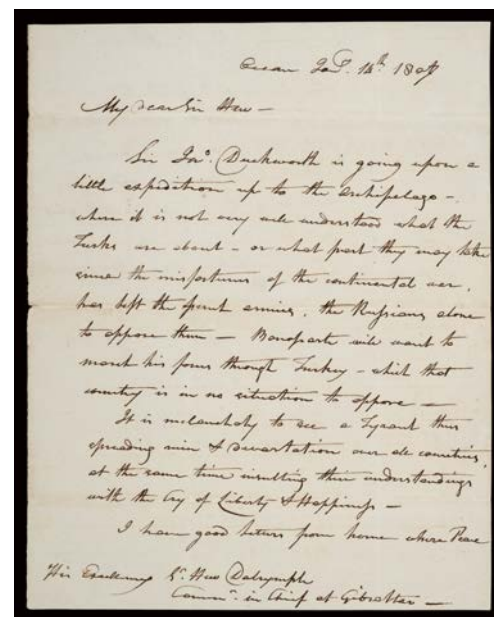 Ocean Jan.y 14th 1807
My dear Sir Hew –
Sir Jno. Duckworth is going upon a
little expedition up to the Archipelago –
where it is not very well understood what the
Turks are about – or what part they may take
since the misfortunes of the continental war,
has left the french armies, the Russians alone
to oppose them – Bonaparte will want to
march his force through Turkey – which that
country is in no situation to oppose –
It is melancholy to see a Tyrant thus
spreading ruin & devastation over all countries,
at the same time insulting their understandings
with the Cry of Liberty & Happiness –
I have good letters from home where Peace
His Excellency Sr. Hew Dalrymple
Commr. in Chief at Gibraltar –